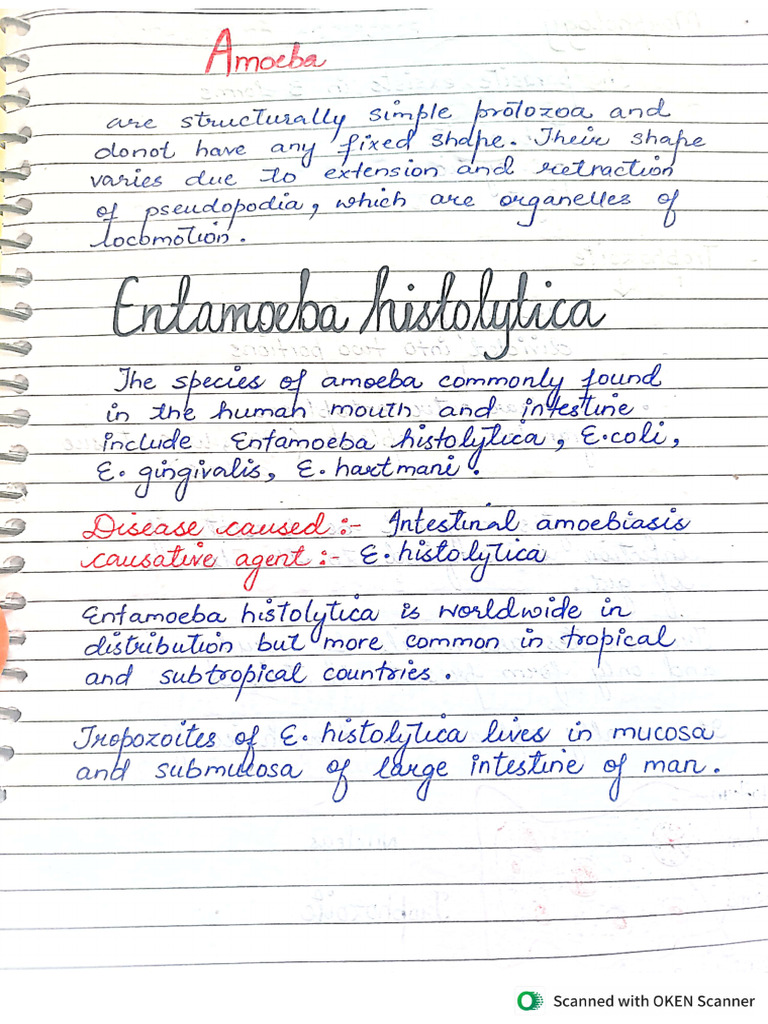 Amoeba
are structurally simple protozoa and
donot have any fixed shape. Their shape
varies due to extension and retraction
of pseudopodia, which are organelles of
locomotion.
Entamoeba histolytica
The species of amoeba commonly found
in the human mouth and intestine
include Entamoeba histolytica, E.coli,
E. gingivalis, E. hartmani.
Disease caused :- Intestinal amoebiasis
causative agent :- E. histolytica
Entamoeba histolytica is worldwide in
distribution but more common in tropical
and subtropical countries.
Tropozoites of E. histolytica lives in mucosa
and submucosa of large intestine of man.
Scanned with OKEN Scanner